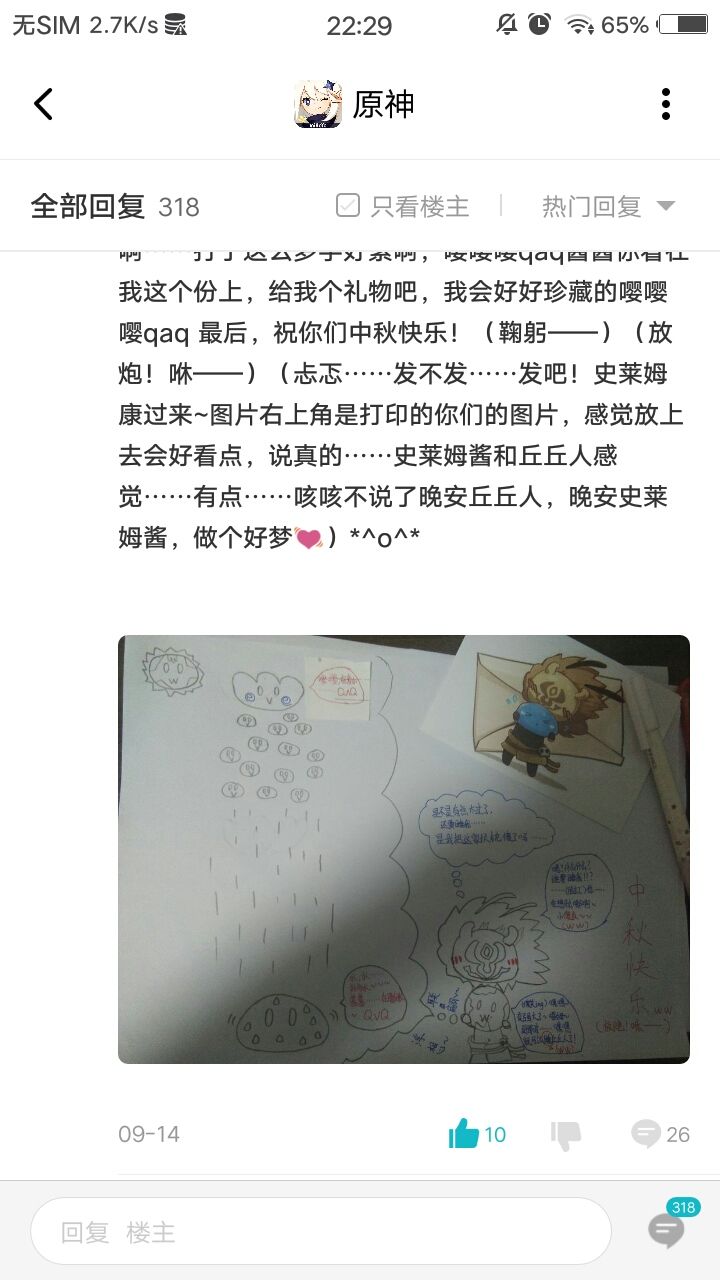 无SIM 2.7K/s 22:29 65%
原神
全部回复 318 只看楼主 热门回复
啊……打了这么多字好累啊，嘤嘤嘤qaq酱酱你看在
我这个份上，给我个礼物吧，我会好好珍藏的嘤嘤
嘤qaq 最后，祝你们中秋快乐！（鞠躬——）（放
炮！咻——）（忐忑……发不发……发吧！史莱姆
康过来~图片右上角是打印的你们的图片，感觉放上
去会好看点，说真的……史莱姆酱和丘丘人感
觉……有点……咳咳不说了晚安丘丘人，晚安史莱
姆酱，做个好梦💓）*^o^*
QvQ
是不是有点太过了，
QvQ
(ww)
中
秋
快
乐ww
(放炮!咻——)
09-14 10 26
回复 楼主
318